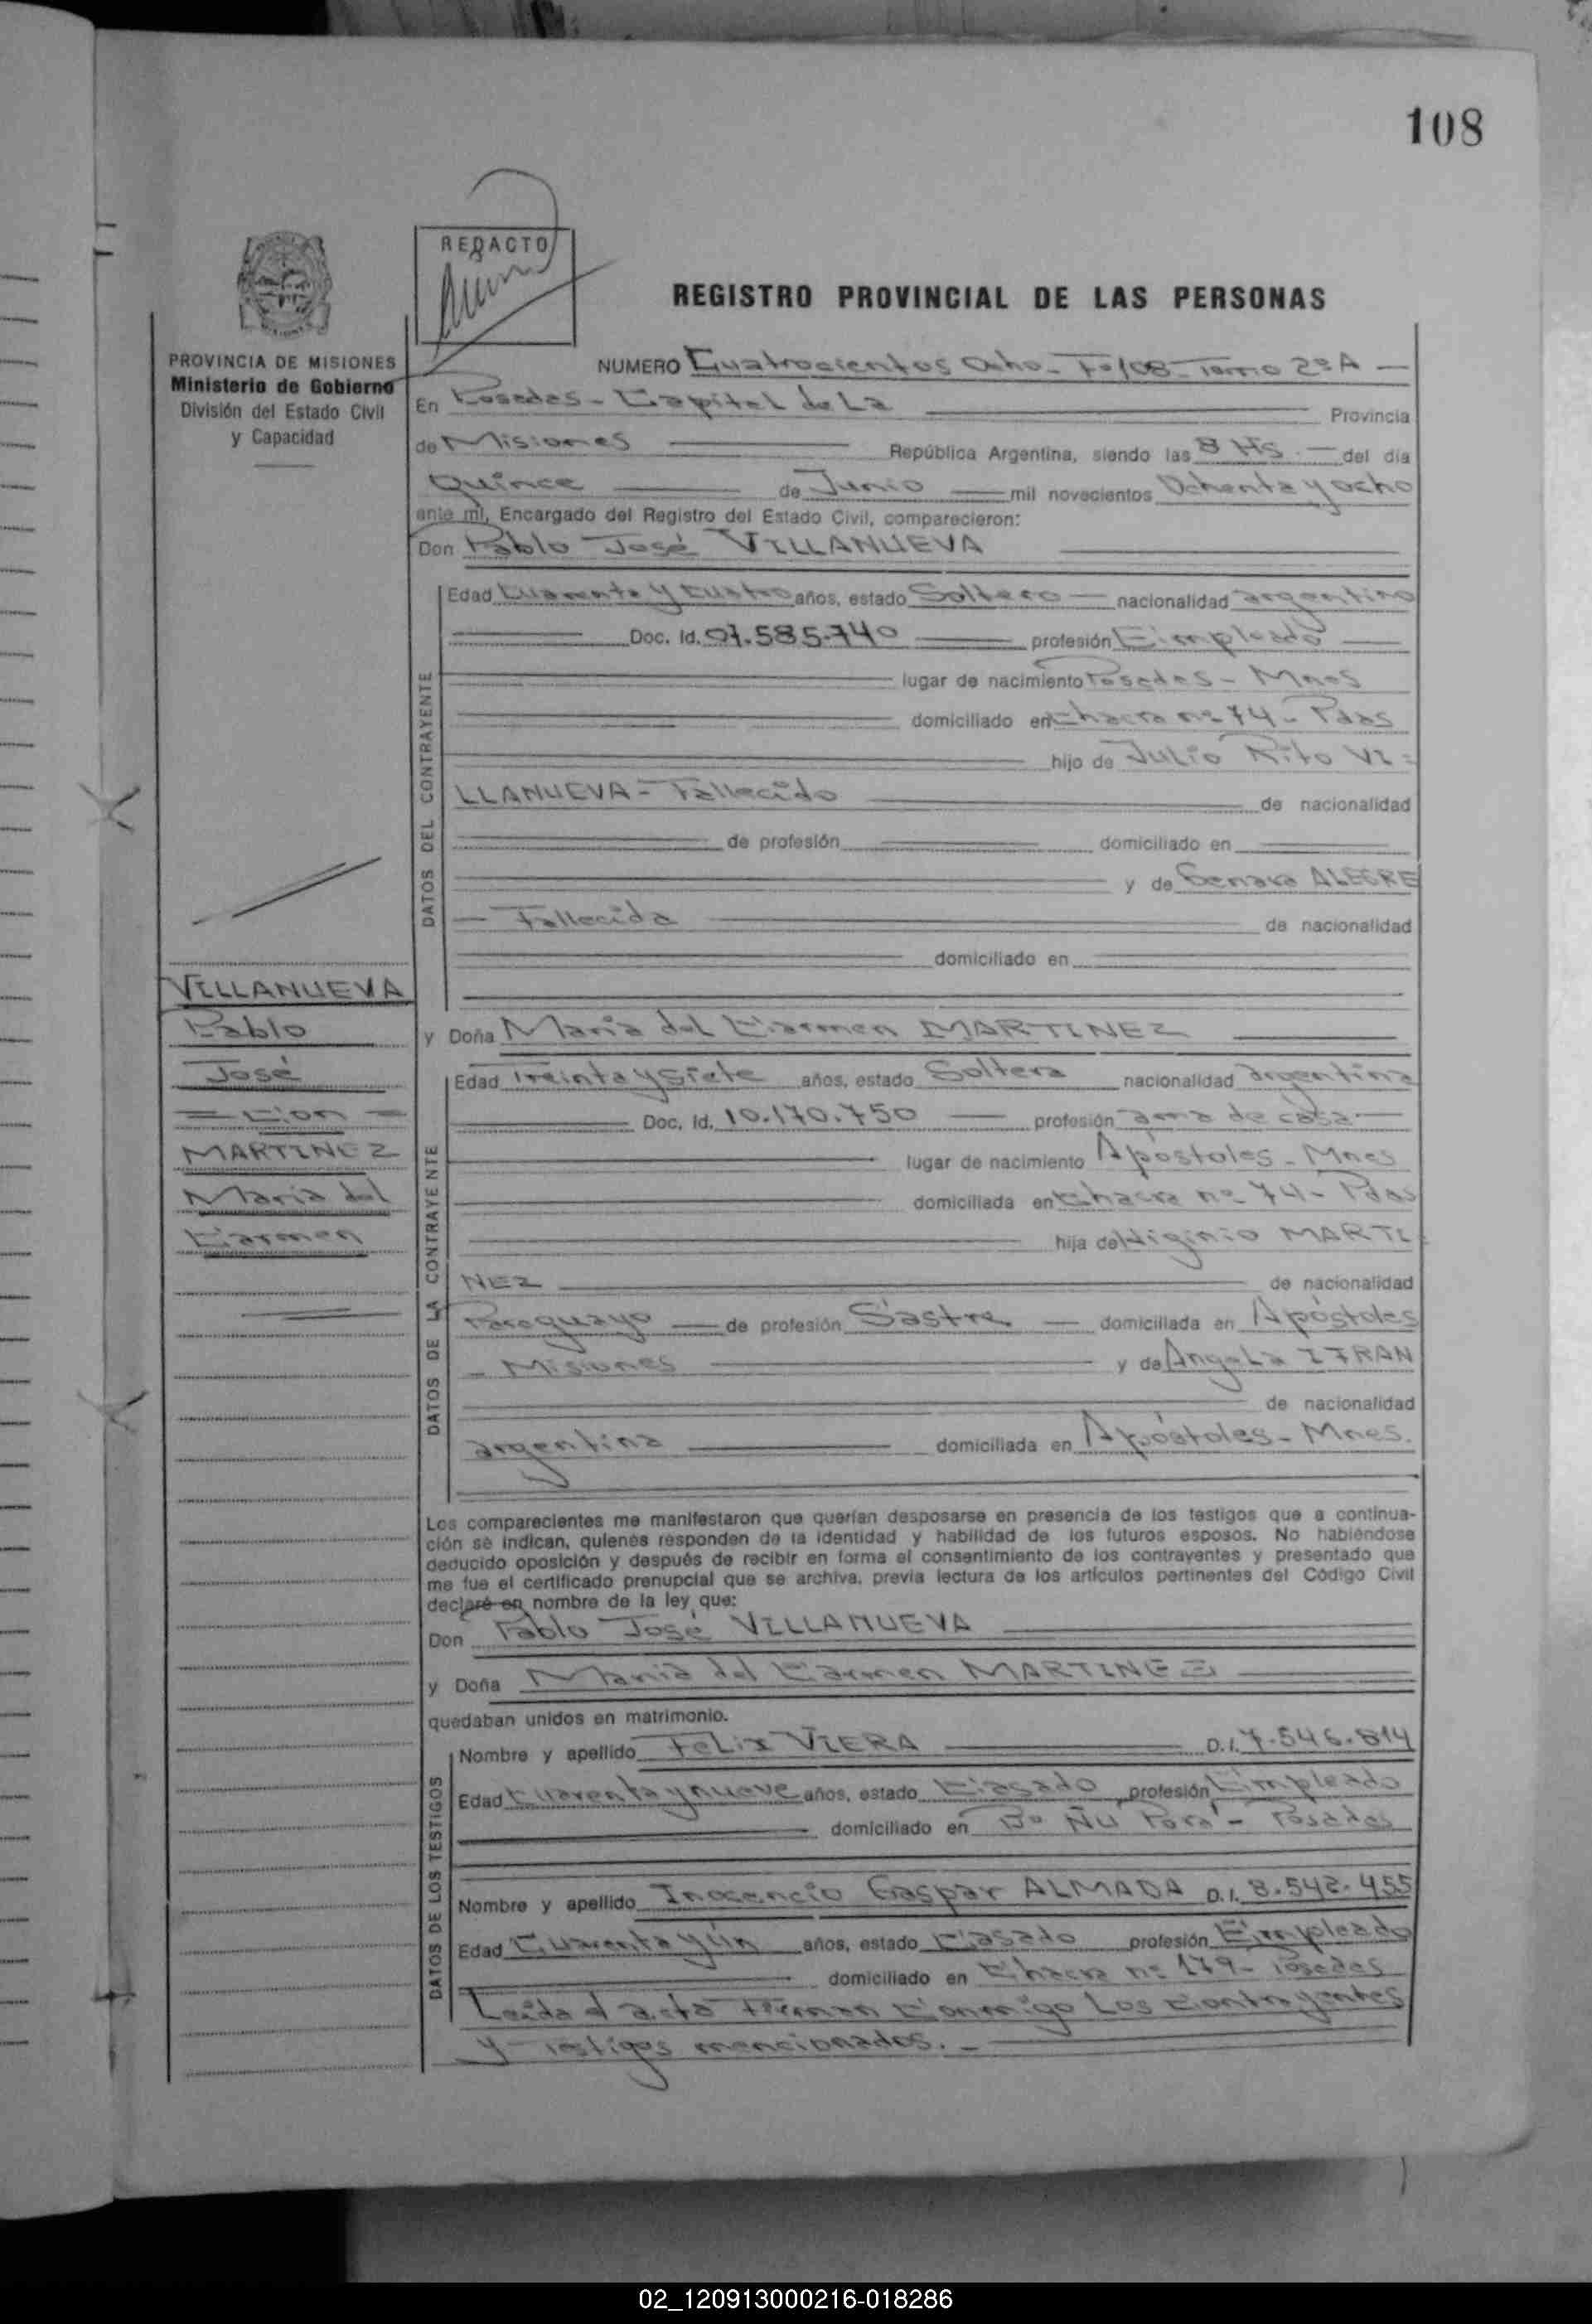 108
REDACTO
REGISTRO PROVINCIAL DE LAS PERSONAS
PROVINCIA DE MISIONES
Ministerio de Gobierno
División del Estado Civil
y Capacidad
NUMERO Cuatrocientos Ocho - Fº 108 - Tomo 2º A
En Posadas - Capital de La Provincia
de Misiones República Argentina, siendo las 8 Hs. del día
Quince de Junio mil novecientos Ochenta y ocho
ante mí, Encargado del Registro del Estado Civil, comparecieron:
Don Pablo José VILLANUEVA
DATOS DEL CONTRAYENTE
Edad Cuarenta y cuatro años, estado Soltero nacionalidad argentino
Doc. Id. 07.585.740 profesión Empleado
lugar de nacimiento Posadas - Mnes
domiciliado en Chacra nº 74 - Pdas
hijo de Julio Rito VI=
LLANUEVA - Fallecido de nacionalidad
de profesión domiciliado en
y de Genara ALEGRE
- Fallecida de nacionalidad
domiciliado en
VILLANUEVA
Pablo
José
= Con =
MARTINEZ
María del
Carmen
y Doña María del Carmen MARTINEZ
DATOS DE LA CONTRAYENTE
Edad Treinta y siete años, estado Soltera nacionalidad argentina
Doc. Id. 10.170.750 profesión ama de casa
lugar de nacimiento Apóstoles - Mnes
domiciliada en Chacra nº 74 - Pdas
hija de Higinio MARTI
NEZ de nacionalidad
Paraguayo de profesión Sastre domiciliada en Apóstoles
- Misiones y de Angela IFRAN
de nacionalidad
argentina domiciliada en Apóstoles - Mnes.
Los comparecientes me manifestaron que querían desposarse en presencia de los testigos que a continua-
ción se indican, quienes responden de la identidad y habilidad de los futuros esposos. No habiéndose
deducido oposición y después de recibir en forma el consentimiento de los contrayentes y presentado que
me fue el certificado prenupcial que se archiva, previa lectura de los artículos pertinentes del Código Civil
declaré en nombre de la ley que:
Don Pablo José VILLANUEVA
y Doña María del Carmen MARTINEZ
quedaban unidos en matrimonio.
DATOS DE LOS TESTIGOS
Nombre y apellido Felix VIERA D.I. 7.546.814
Edad Cuarenta y nueve años, estado Casado profesión Empleado
domiciliado en Bº Ñu Porá - Posadas
Nombre y apellido Inocencio Gaspar ALMADA D.I. 8.542.455
Edad Cuarenta y ún años, estado Casado profesión Empleado
domiciliado en Chacra nº 179 - Posadas
Leída el acta Firman Conmigo Los Contrayentes
y Testigos mencionados. -
02_120913000216-018286